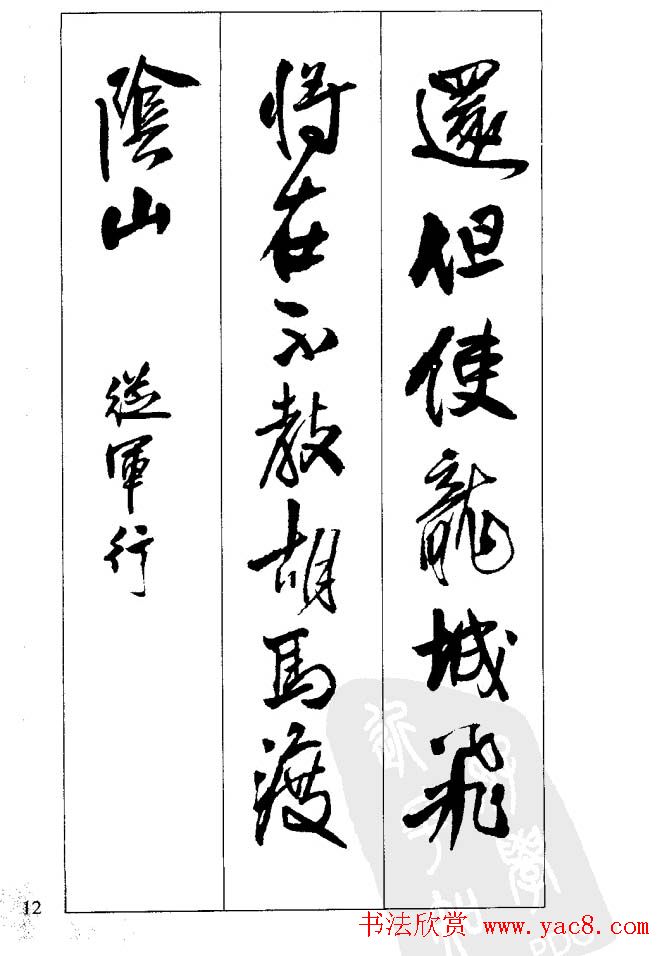 還但使龍城飛
將在不教胡馬渡
陰山 從軍行
12
书法欣赏 www.yac8.com